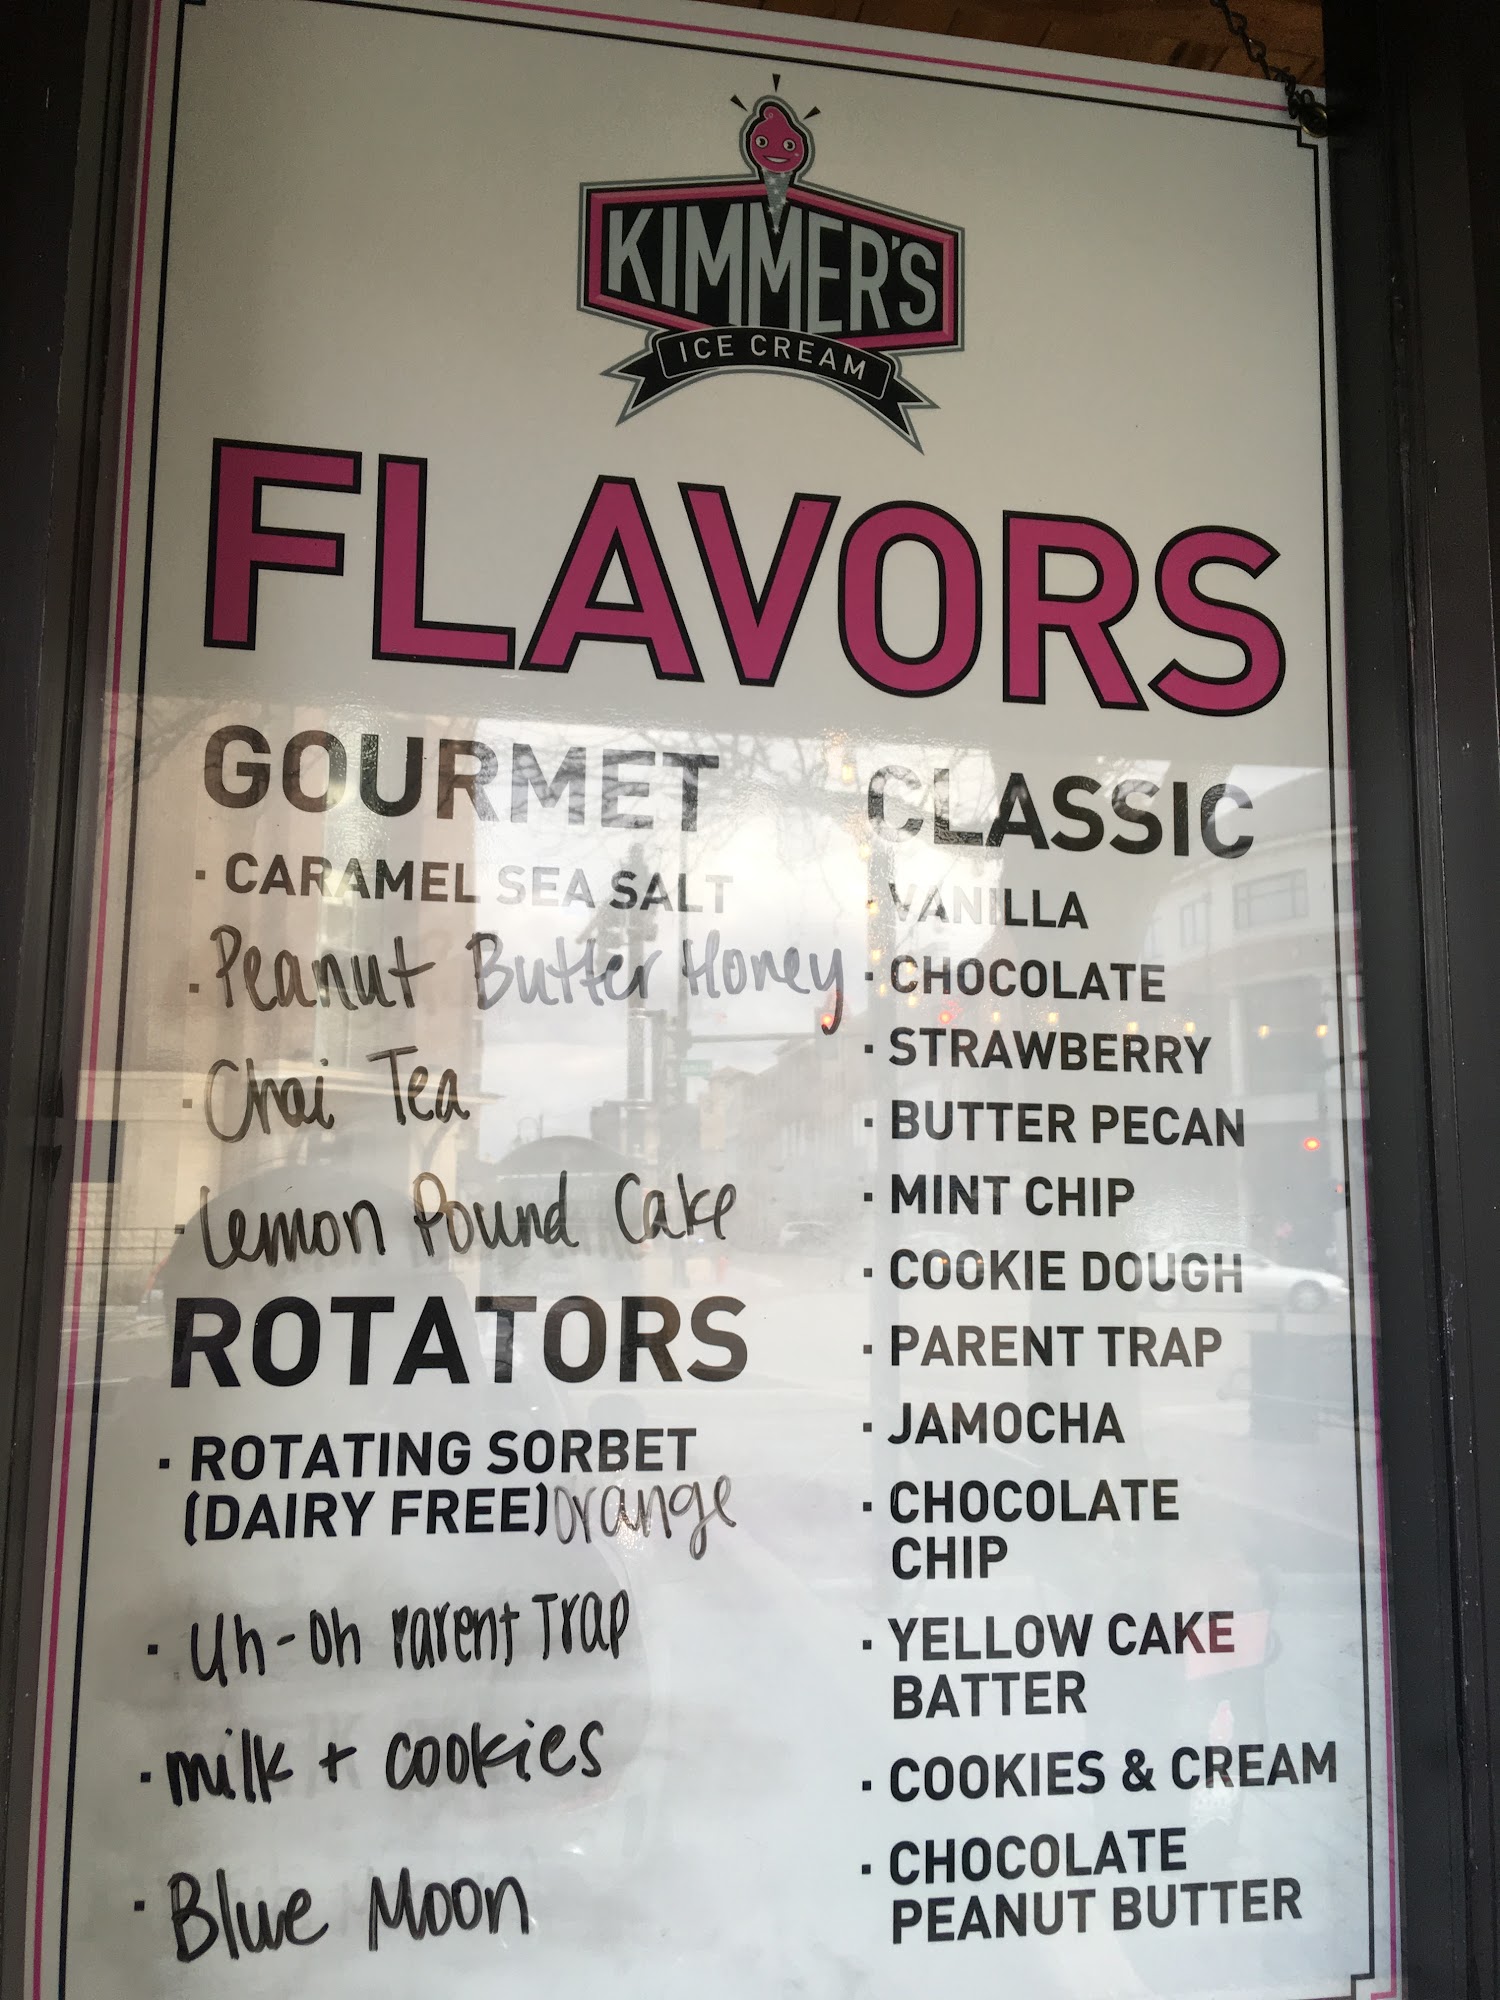 KIMMER'S
ICE CREAM
FLAVORS
GOURMET
· CARAMEL SEA SALT
· Peanut Butter Honey
· Chai Tea
· Lemon Pound Cake
ROTATORS
· ROTATING SORBET
(DAIRY FREE) orange
· Uh-oh Parent Trap
· milk + cookies
· Blue Moon
CLASSIC
· VANILLA
· CHOCOLATE
· STRAWBERRY
· BUTTER PECAN
· MINT CHIP
· COOKIE DOUGH
· PARENT TRAP
· JAMOCHA
· CHOCOLATE
CHIP
· YELLOW CAKE
BATTER
· COOKIES & CREAM
· CHOCOLATE
PEANUT BUTTER